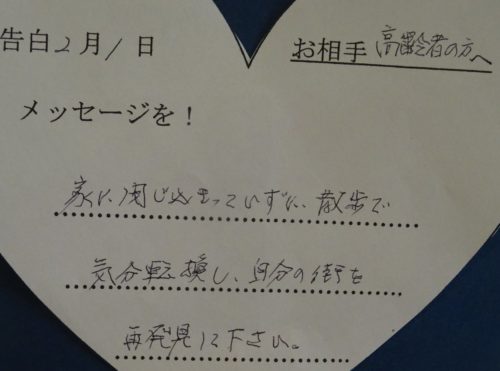 告白2月1日
お相手 高齢者の方へ
メッセージを！
家に閉じ込まっていずに、散歩で
気分転換し、自分の街を
再発見して下さい。